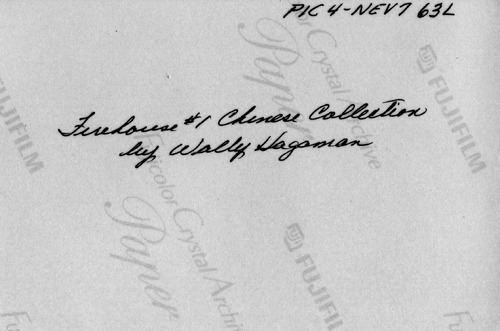 PIC 4-NEV7 63L
Firehouse #1 Chinese Collection
by Wally Hagaman
FUJIFILM
Crystal Archive
Paper
FUJIFILM
Fujicolor Crystal Archive
Paper
FUJIFILM